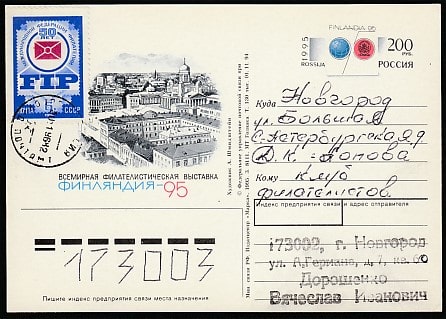 МЕЖДУНАРОДНОЙ ФЕДЕРАЦИИ ФИЛАТЕЛИИ
50 ЛЕТ
FIP
ПОЧТА СССР
ПОЧТАМТ
FINLANDIA 95
1995
ROSSIJA
200
РУБ.
РОССИЯ
ВСЕМИРНАЯ ФИЛАТЕЛИСТИЧЕСКАЯ ВЫСТАВКА
ФИНЛЯНДИЯ-95
Куда Новгород
ул. Большая
С-Петербургская д.
Д.К. Попова
Кому клуб
филателистов
Индекс предприятия связи и адрес отправителя
173002, г. Новгород
ул. А.Германа, д.7, кв.60
Дорошенко
Вячеслав Иванович
173003
Пишите индекс предприятия связи места назначения